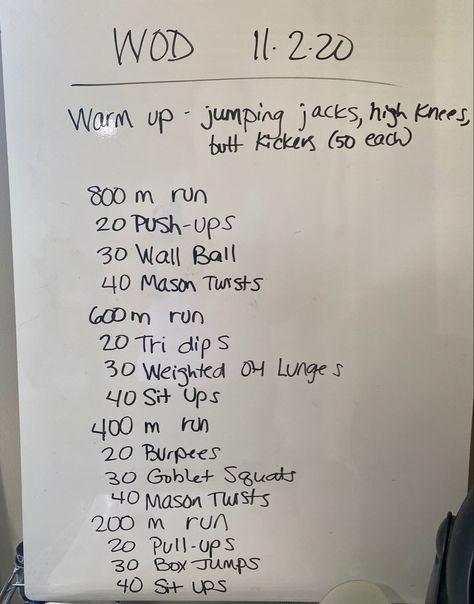 WOD 11.2.20
Warm up - jumping jacks, high knees,
butt kickers (50 each)
800 m run
20 Push-ups
30 Wall Ball
40 Mason Twists
600 m run
20 Tri dips
30 Weighted OH Lunges
40 Sit Ups
400 m run
20 Burpees
30 Goblet Squats
40 Mason Twists
200 m run
20 Pull-ups
30 Box Jumps
40 Sit ups